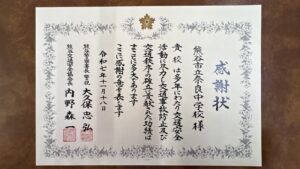 感謝状
熊谷市立奈良中学校様
貴校は多年にわたり交通安全
活動に尽力し交通事故防止及び
交通秩序の確立に貢献された功績は
まことに多大であります
ここに感謝の意を表します
令和七年十一月十八日
熊谷警察署長 警視 大久保忠弘
内野森一